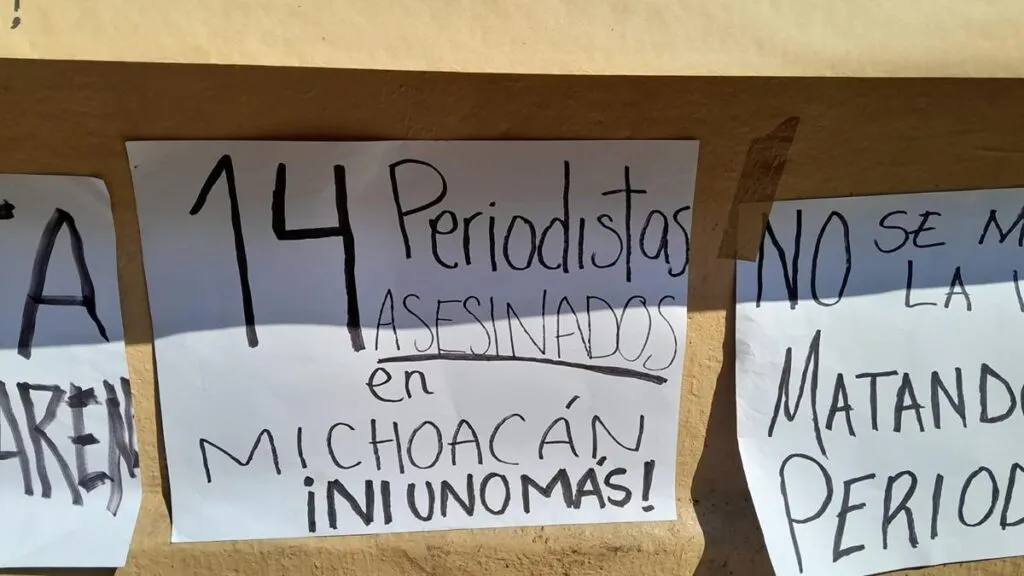 14 Periodistas
ASESINADOS
en
MICHOACÁN
¡NI UNO MÁS!
NO SE
LA
MATANDO